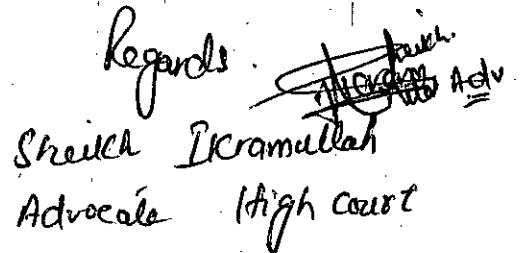 Regards.
Sheikh Ikramullah
Advocate High Court
Adv